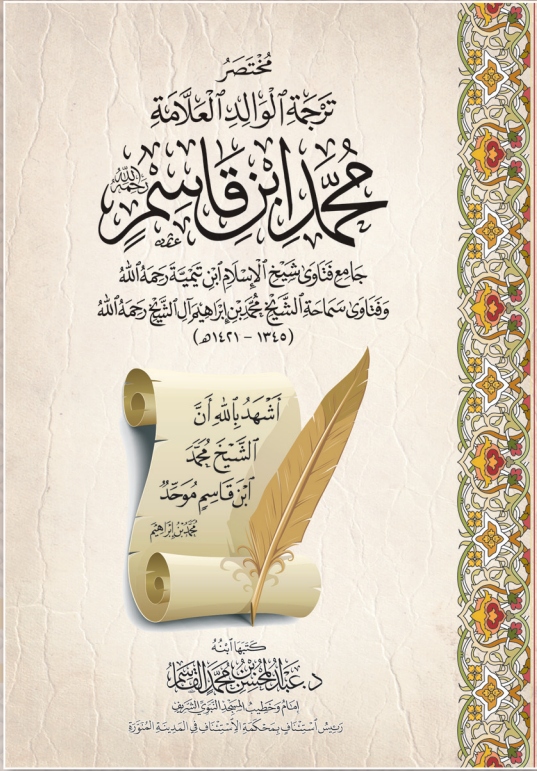 مُخْتَصَرُ
تَرْجَمَةِ ٱلْوَالِدِ ٱلْعَلَّامَةِ
مُحَمَّدِ ٱبْنِ قَاسِمٍ رَحِمَهُ ٱللَّٰهُ
جَامِعِ فَتَاوَى شَيْخِ ٱلْإِسْلَامِ ٱبْنِ تَيْمِيَّةَ رَحِمَهُ ٱللَّٰهُ
وَفَتَاوَى سَمَاحَةِ ٱلشَّيْخِ مُحَمَّدِ بْنِ إِبْرَاهِيمَ آلِ ٱلشَّيْخِ رَحِمَهُ ٱللَّٰهُ
(١٣٤٥ - ١٤٢١هـ)
أَشْهَدُ بِاللهِ أَنَّ
ٱلشَّيْخَ مُحَمَّدَ
ٱبْنَ قَاسِمٍ مُوَحِّدٌ
مُحَمَّدُ بْنُ إِبْرَاهِيمَ
كَتَبَهَا ٱبْنُهُ
د. عَبْدُ ٱلْمُحْسِنِ بْنُ مُحَمَّدٍ ٱلْقَاسِمُ
إِمَامُ وَخَطِيبُ ٱلْمَسْجِدِ ٱلنَّبَوِيِّ ٱلشَّرِيفِ
رَئِيسُ ٱسْتِئْنَافٍ بِمَحْكَمَةِ ٱلِاسْتِئْنَافِ فِي ٱلْمَدِينَةِ ٱلْمُنَوَّرَةِ